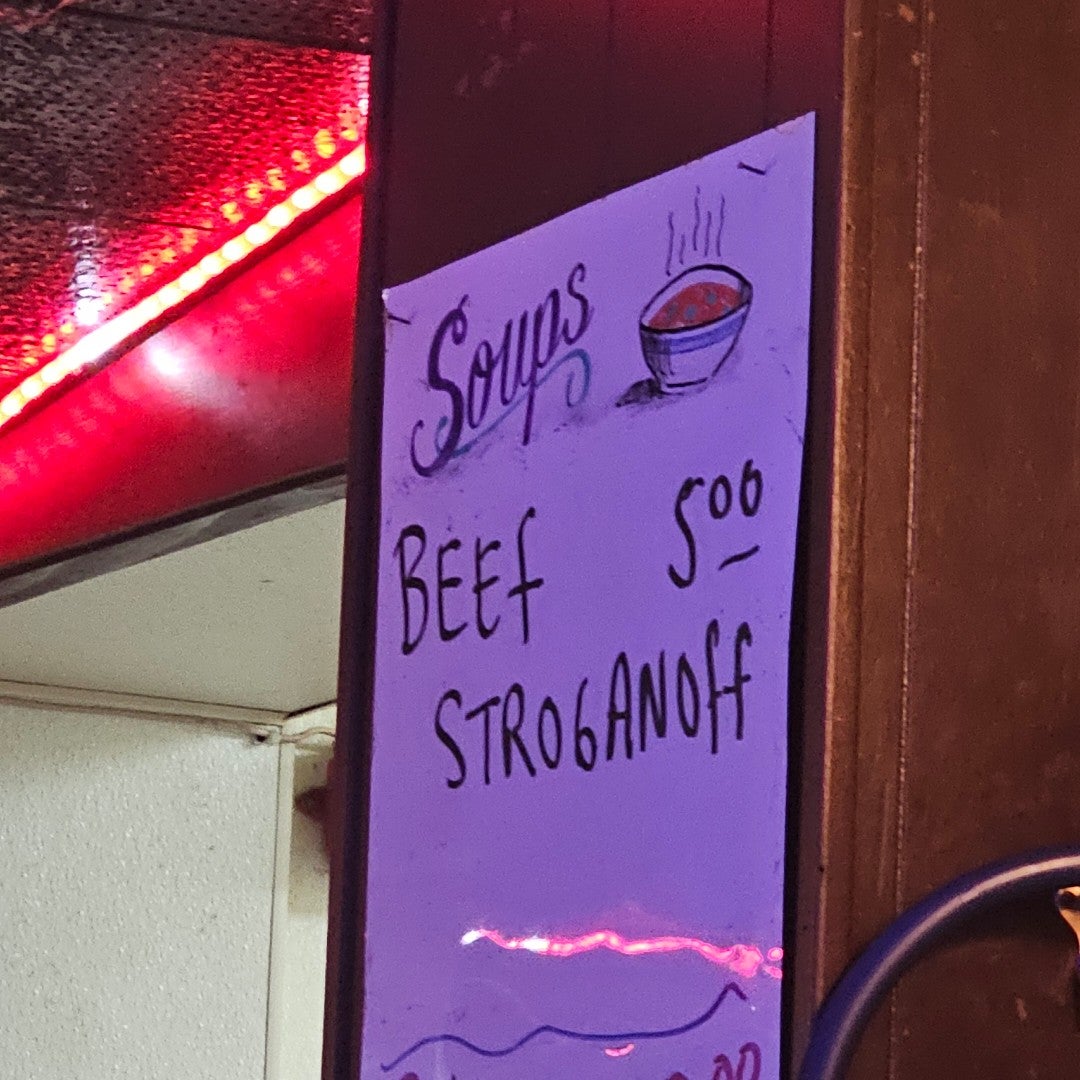 Soups
BEEf 500
STROGANOff